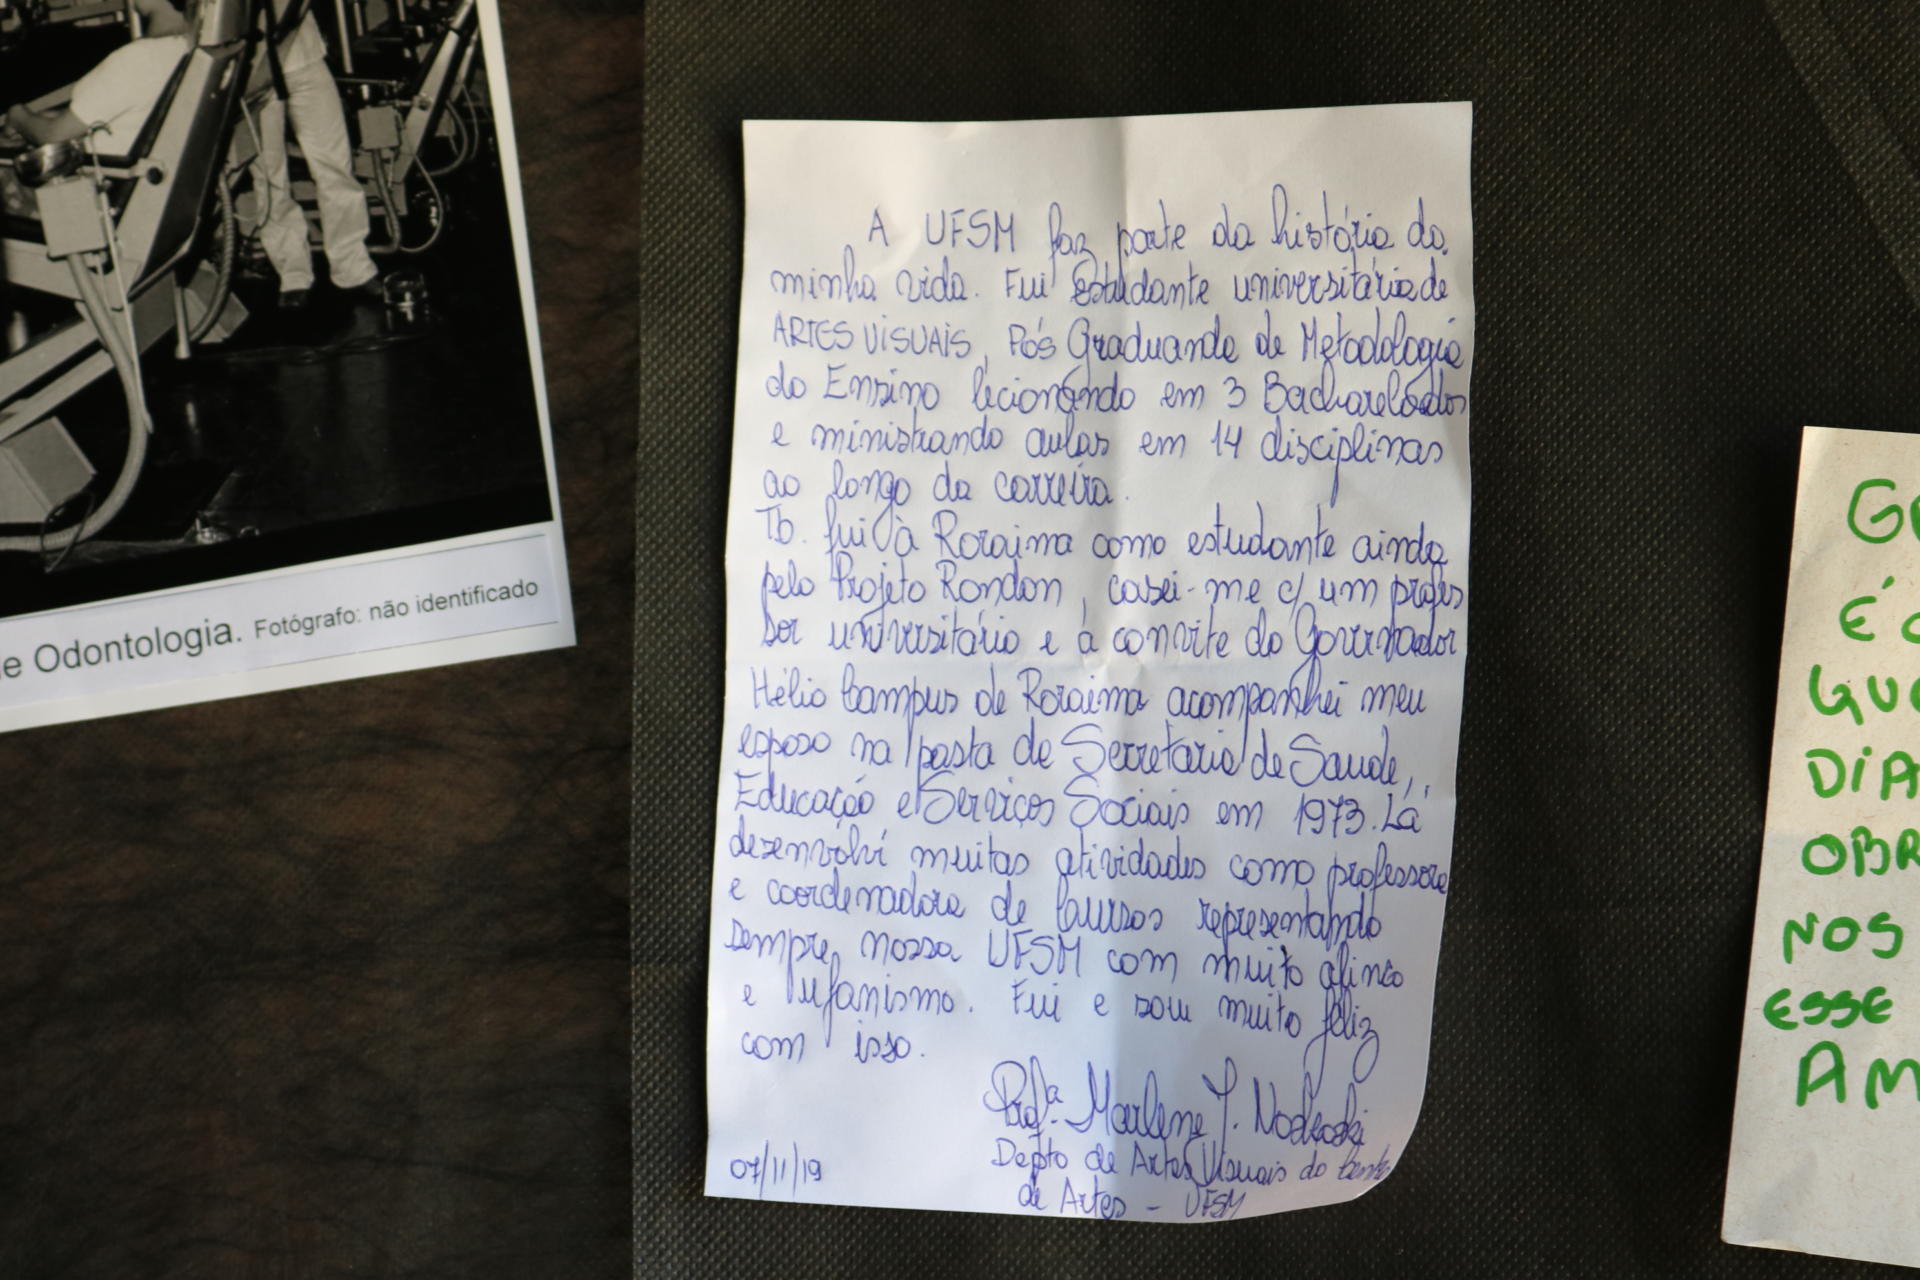 e Odontologia. Fotógrafo: não identificado
A UFSM faz parte da história da
minha vida. Fui Estudante universitária de
ARTES VISUAIS, Pós Graduando de Metodologia
do Ensino lecionando em 3 Bacharelados
e ministrando aulas em 14 disciplinas
ao longo da carreira.
Tb. fui à Roraima como estudante ainda
pelo Projeto Rondon, casei-me c/ um profes
sor universitário e à convite do Governador
Hélio Campus de Roraima acompanhei meu
esposo na pasta de Secretaria de Saude,
Educação e Serviços Sociais em 1973. Lá
desenvolvi muitas atividades como professora
e coordenadora de Cursos representando
sempre nossa UFSM com muito afinco
e ufanismo. Fui e sou muito feliz
com isso.
Profª. Marlene J.
Depto de Artes Visuais do Centro
de Artes - UFSM
07/11/19
É
DIA
OBR
NOS
ESSE
AM